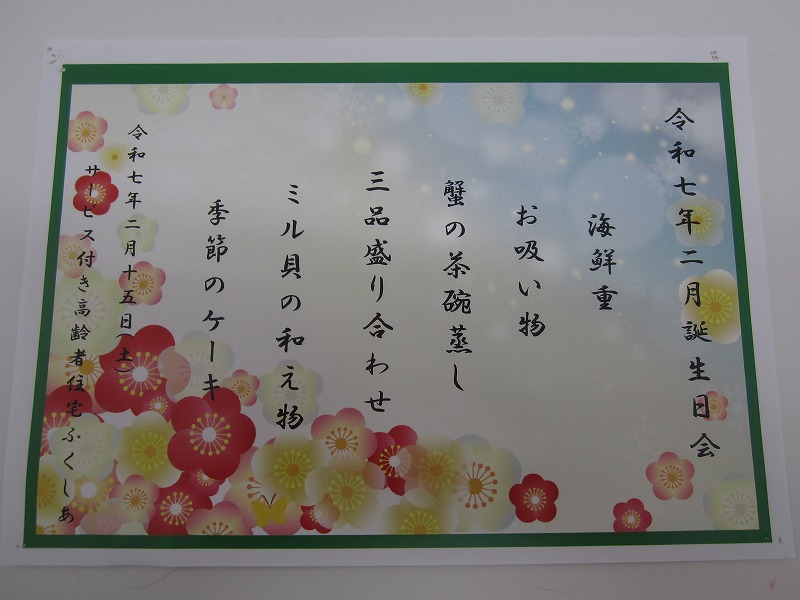 令和七年二月誕生日会
海鮮重
お吸い物
蟹の茶碗蒸し
三品盛り合わせ
ミル貝の和え物
季節のケーキ
令和七年二月十五日(土)
サービス付き高齢者住宅ふくしあ